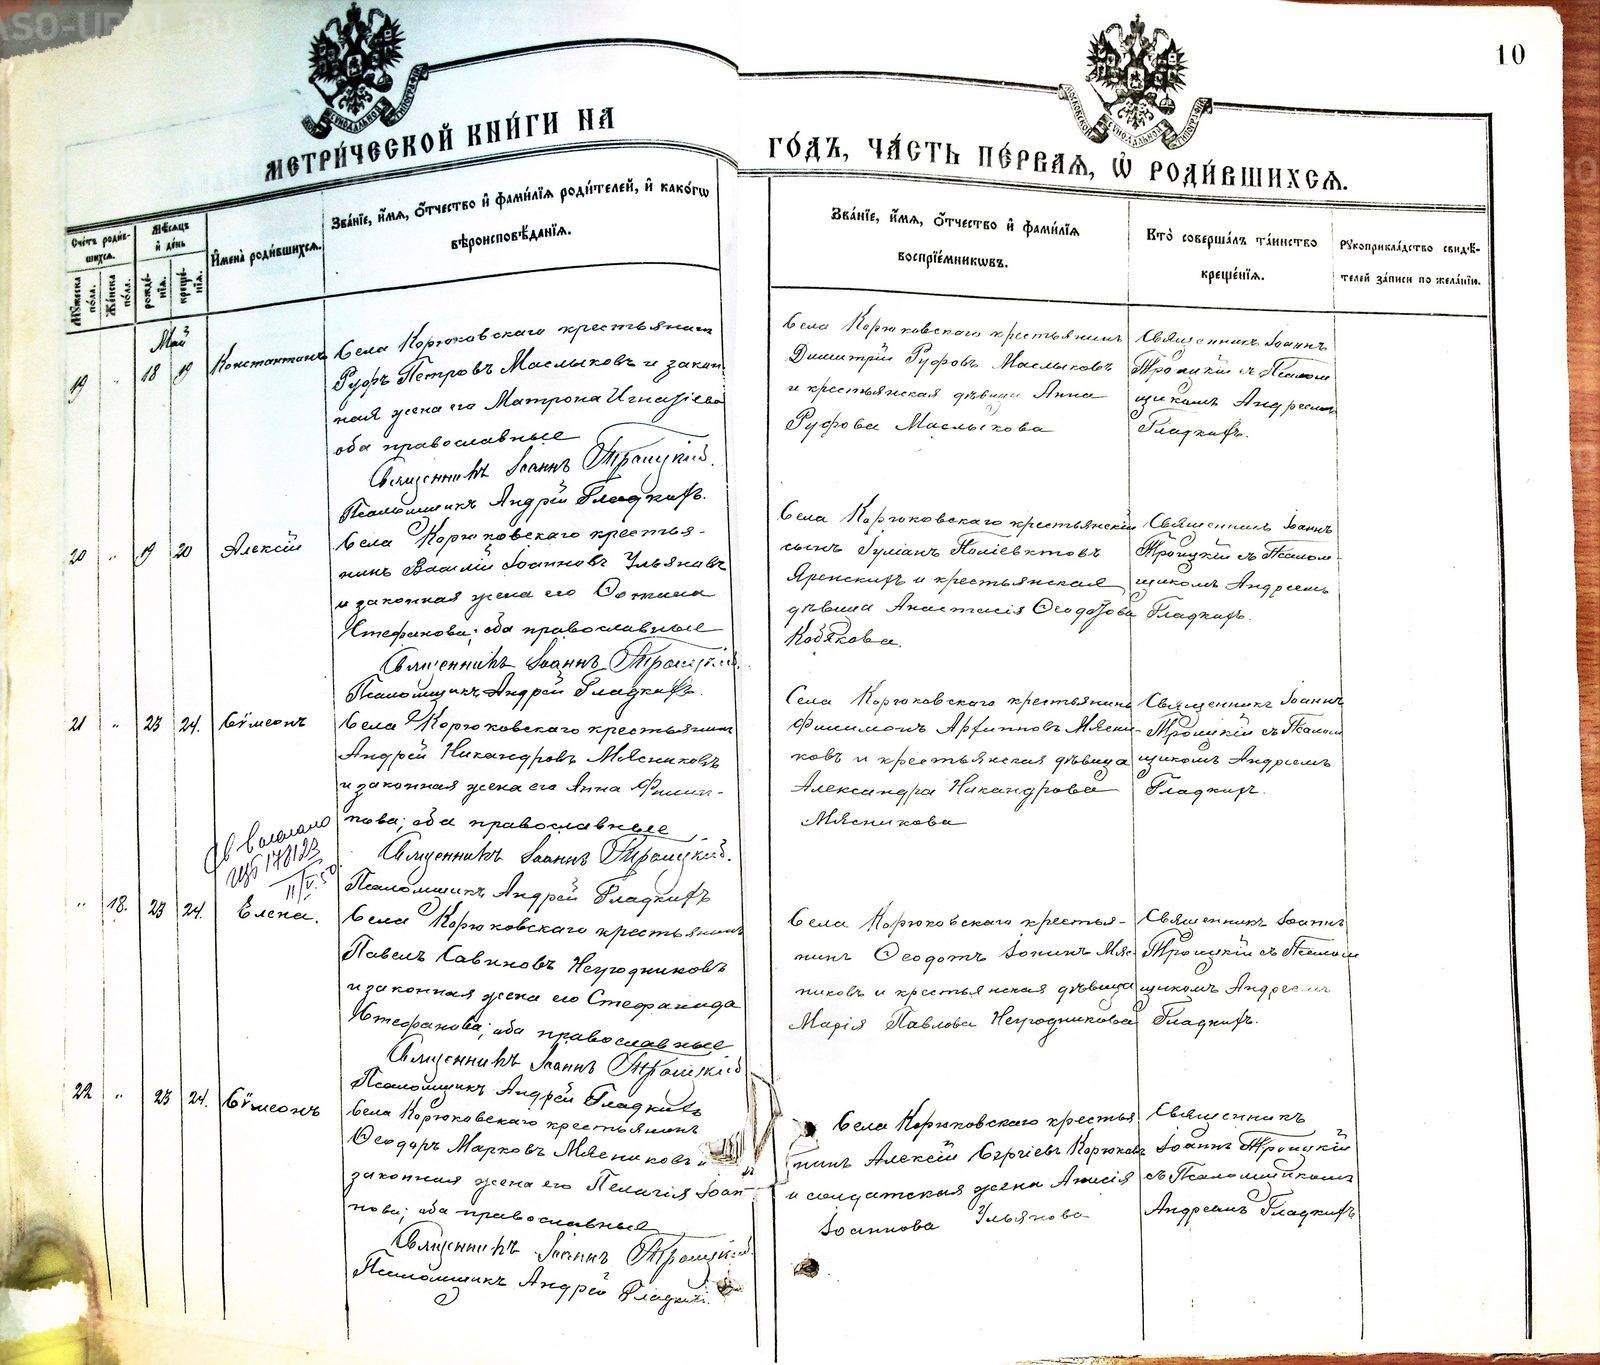 ASO-URAL.RU
10
МЕТРИ́ЧЕСКОЙ КНИ́ГИ НА
ГО́ДЪ, ЧА́СТЬ ПЕ́РВАЯ, Ѡ҆ РОДИ́ВШИХСЯ.
Сче́тъ роди́в-
шихся.
Му́жеска по́ла.
Же́нска по́ла.
Мѣ́сяцъ
и҆ де́нь
рожде́-
нїя.
креще́-
нїя.
И҆мена̀ роди́вшихся.
Зва́нїе, и҆́мя, ѻ҆́тчество и҆ фами́лїя роди́телей, и҆ како́гѡ
вѣроисповѣ́данїя.
Зва́нїе, и҆́мя, ѻ҆́тчество и҆ фами́лїя
воспрїе́мникѡвъ.
Кто̀ соверша́лъ та́инство
креще́нїя.
Рꙋкоприкла́дство свидѣ́-
телей за́писи по жела́нїю.
Май
19 " 18 19 Константинъ
Села Корюковскаго крестьянинъ
Руфъ Петровъ Маслыковъ и закон
ная жена его Матрона Игнатіева
оба православные
Священникъ Іоаннъ Троицкій.
Псаломщикъ Андрей Гладкихъ.
Села Корюковскаго крестьянинъ
Димитрій Руфовъ Маслыковъ
и крестьянская дѣвица Анна
Руфова Маслыкова
Священникъ Іоаннъ
Троицкій съ Псалом
щикомъ Андреемъ
Гладкихъ.
20 " 19 20 Алексій
Села Корюковскаго крестья-
нинъ Василій Іоанновъ Ульяновъ
и законная жена его
Стефанова; оба православные
Священникъ Іоаннъ Троицкій.
Псаломщикъ Андрей Гладкихъ.
Села Корюковскаго крестьянскій
сынъ Іуліанъ Поліевктовъ
Яренскихъ и крестьянская
дѣвица Анастасія Ѳеодотова
Кобякова.
Священникъ Іоаннъ
Троицкій съ Псалом-
щикомъ Андреемъ
Гладкихъ.
21 " 23 24. Сѵмеонъ
Села Корюковскаго крестьянинъ
Андрей Никандровъ Мясниковъ
и законная жена его Анна Филип-
пова; оба православные
Священникъ Іоаннъ Троицкій.
Псаломщикъ Андрей Гладкихъ
Села Корюковскаго крестьянинъ
Филимонъ Архипповъ Мясни-
ковъ и крестьянская дѣвица
Александра Никандрова
Мясникова
Священникъ Іоаннъ
Троицкій съ Псалом
щикомъ Андреемъ
Гладкихъ.
178123
" 18. 23 24. Елена.
Села Корюковскаго крестьянинъ
Павелъ Савиновъ Неугодниковъ
и законная жена его Стефанида
Стефанова; оба православные
Священникъ Іоаннъ Троицкій
Псаломщикъ Андрей Гладкихъ
Села Корюковскаго крестья-
нинъ Ѳеодотъ Іонинъ Мяс-
никовъ и крестьянская дѣвица
Марія Павлова Неугодникова
Священникъ Іоаннъ
Троицкій съ Псалом
щикомъ Андреемъ
Гладкихъ.
22 " 23 24. Сѵмеонъ
Села Корюковскаго крестьянинъ
Ѳеодоръ Марковъ Мясниковъ и
законная жена его Пелагія Іоан-
нова; оба православные
Священникъ Іоаннъ Троицкій.
Псаломщикъ Андрей Гладкихъ.
Села Корюковскаго крестья
нинъ Алексій Сергіевъ Корюковъ
и солдатская жена Анисія
Іоаннова Ульянова
Священникъ
Іоаннъ Троицкій
съ Псаломщикомъ
Андреемъ Гладкихъ